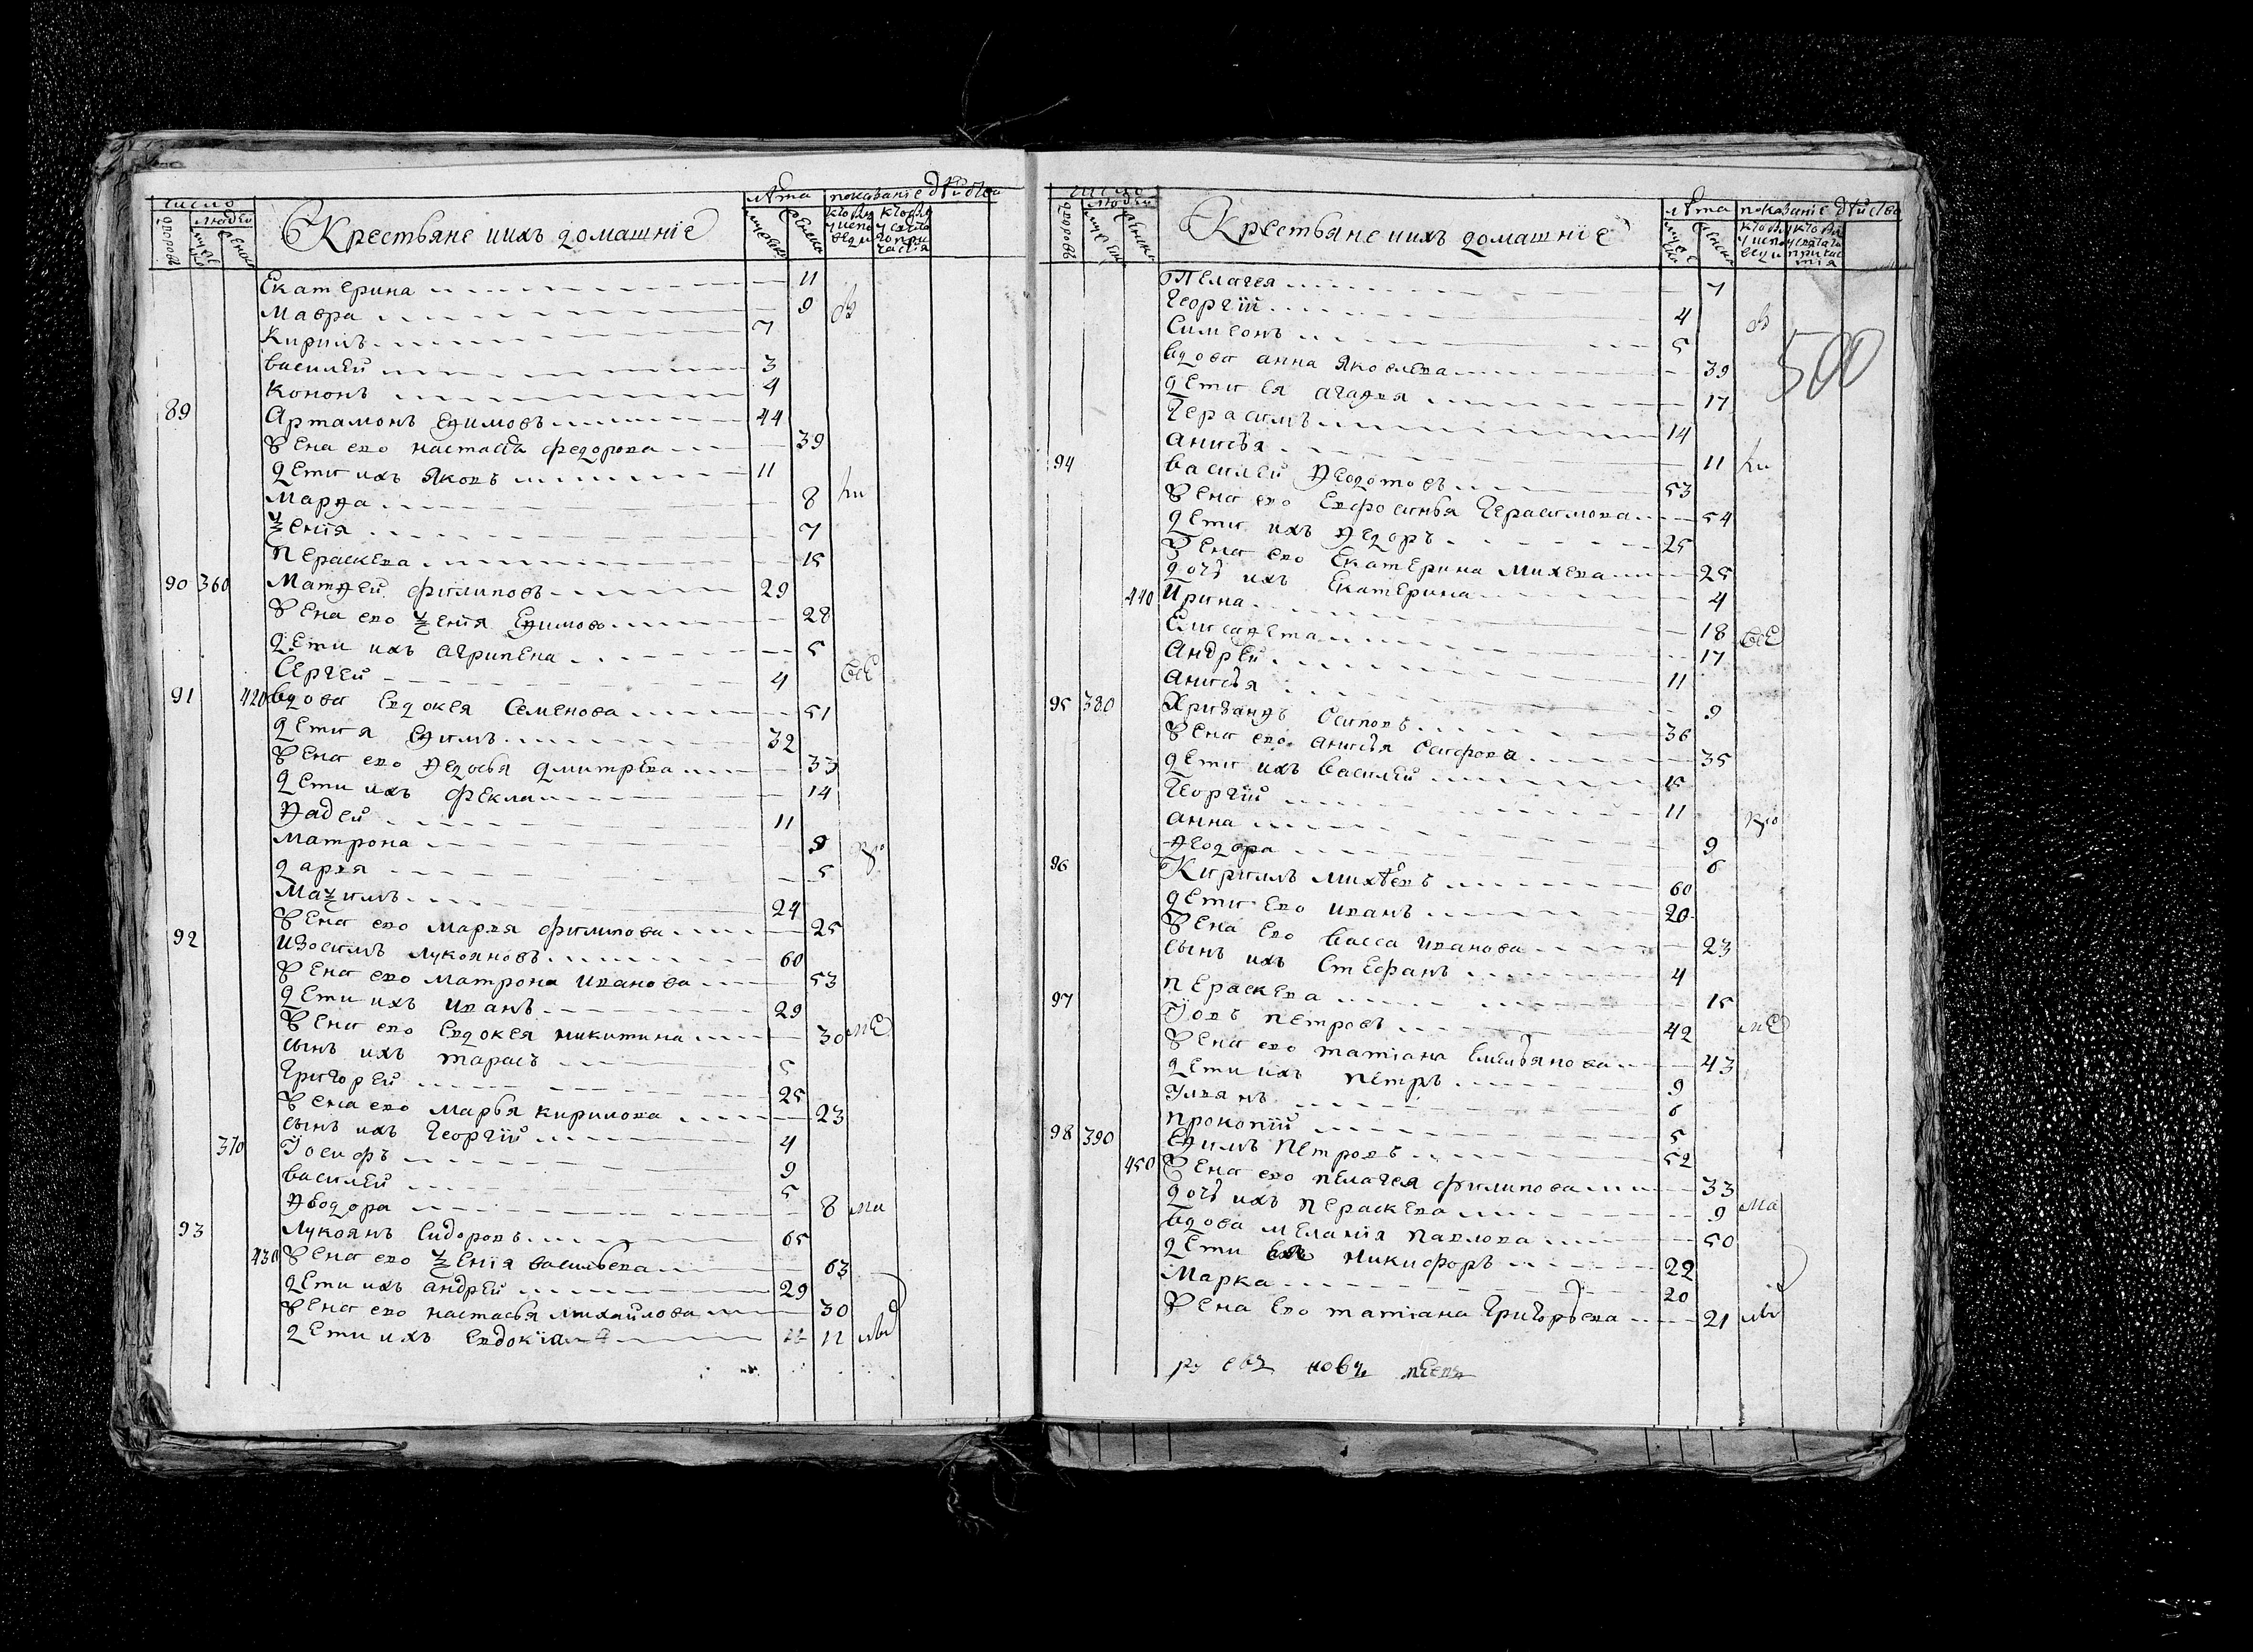 число лѣта показание дѣйства
дворовъ людей мужеска женска Крестьяне ихъ домашніе мужеска женска
Екатерина 11
Мавра 9 въ
Кирилъ 7
василей 3
Кононъ 4
89 Артамонъ Еѳимовъ 44
Жена ево настасья федорова 39
дети ихъ Яковъ 11
Марѳа 8 ли
Ѯенія 7
Пераскева 15
90 360 Матѳей филиповъ 29
Жена ево Ѯенія Еѳимова 28
дети ихъ агрипена 5
Сергей 4 все
91 420 вдова Евдокея Семенова 51
дети я Еѳимъ 32
Жена ево Ѳедосья дмитрева 33
дети ихъ фекла 14
Ѳадей 11
Матрона 9
даря 5
Маѯимъ 24
Жена ево Марея филипова 25
92 изосимъ лукояновъ 60
Жена ево матрона иванова 53
дети ихъ иванъ 29
Жена ево Евдокея никитина 30 ме
сынъ ихъ тарасъ 5
Григорей 25
Жена ево марья кирилова 23
сынъ ихъ Георгій 4
370 Іосифъ 9
василей 5
Ѳеодора 8 ма
93 Лукоянъ Сидоровъ 65
430 Жена ево Ѯенія васильева 63
дети ихъ андрей 29
Жена ево настасья михайлова 30
дети ихъ Евдокія 11
число лѣта показание дѣйства
дворовъ людей мужеска женска Крестьяне ихъ домашніе
Пелагея 7
Георгій 4 въ
Симеонъ 5
500
вдова анна Яковлева 39
дети ея агаѳея 17
Герасимъ 14
анисья 11 ли
94 василей Ѳеодотовъ 53
Жена ево Евфросинья Герасимова 54
дети ихъ Ѳедоръ 25
Жена ево Екатерина михева 25
дочь ихъ Екатерина 4
440 Ирина 18
Елисавета 17 все
Андрей 11
анисья 9
95 380 Хрисанѳъ Осиповъ 36
Жена ево анисья Осифова 35
дети ихъ василей 15
Георгій 11
анна 9
Ѳеодора 6
96 Кирилъ михѣевъ 60
дети Ево иванъ 20
Жена Ево васса иванова 23
сынъ ихъ Стефанъ 4
Пераскева 15
97 Іовъ Петровъ 42 ме
Жена ево татіана Емельянова 43
дети ихъ петръ 9
Улянъ 6
прокопій 5
98 390 Еѳимъ Петровъ 52
450 Жена ево пелагея филипова 33
дочь ихъ пераскева 9 ма
вдова меланія павлова 50
дети никифоръ 22
Марка 20
Жена Ево татіана Григорьева 21